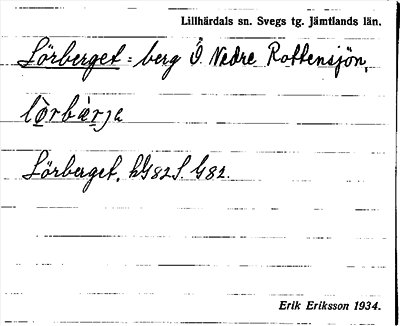 Lillhärdals sn. Svegs tg. Jämtlands län.
Lörberget = berg Ö. Nedre Rottensjön,
lò̤rbæ̀rja
Lörberget, hG82S. G82.
Erik Eriksson 1934.